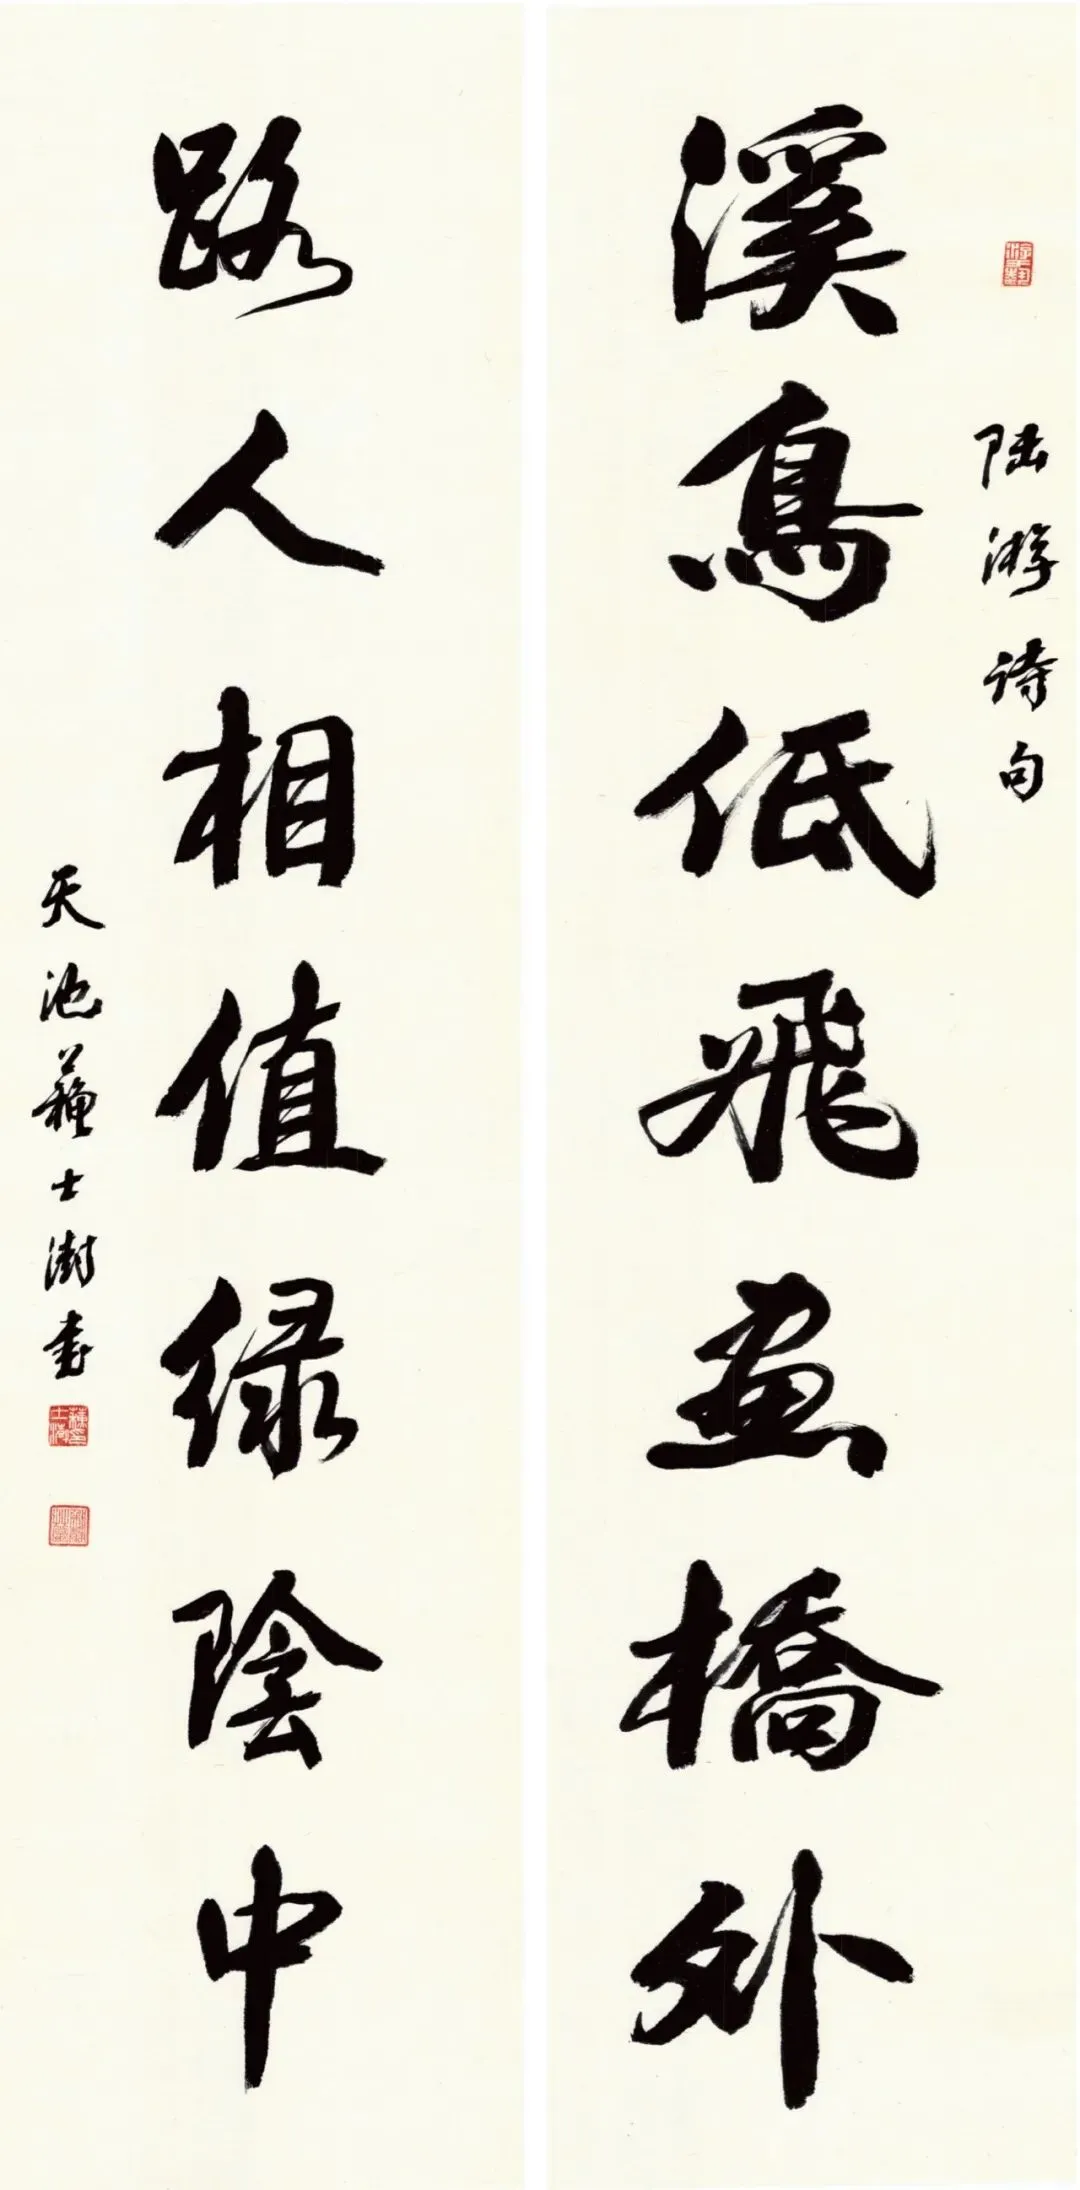 陸游詩句
溪鳥低飛畫橋外
路人相值綠陰中
天池蘇士澍書